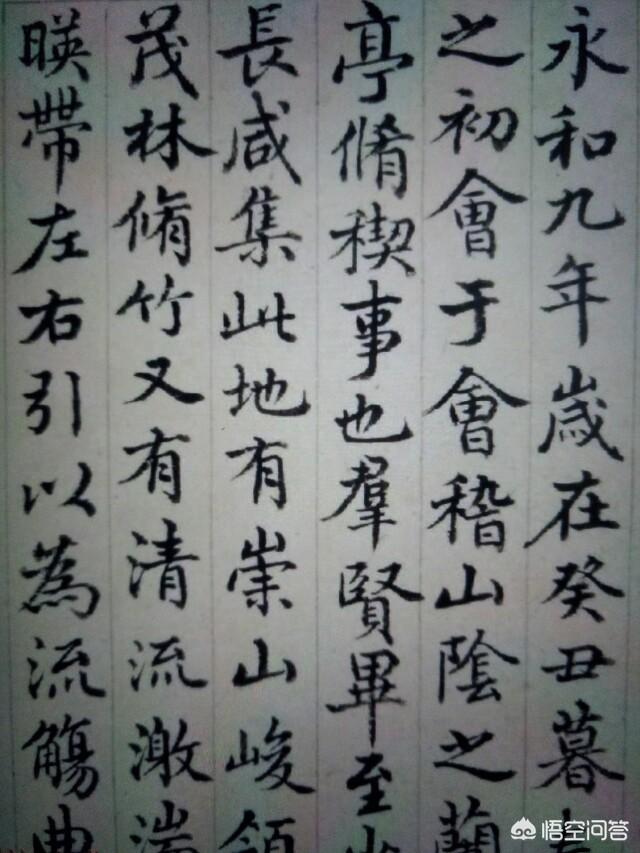 永和九年歲在癸丑暮
之初會于會稽山陰之蘭
亭脩稧事也羣賢畢至少
長咸集此地有崇山峻領
茂林脩竹又有清流激湍
暎帶左右引以為流觴曲
悟空问答